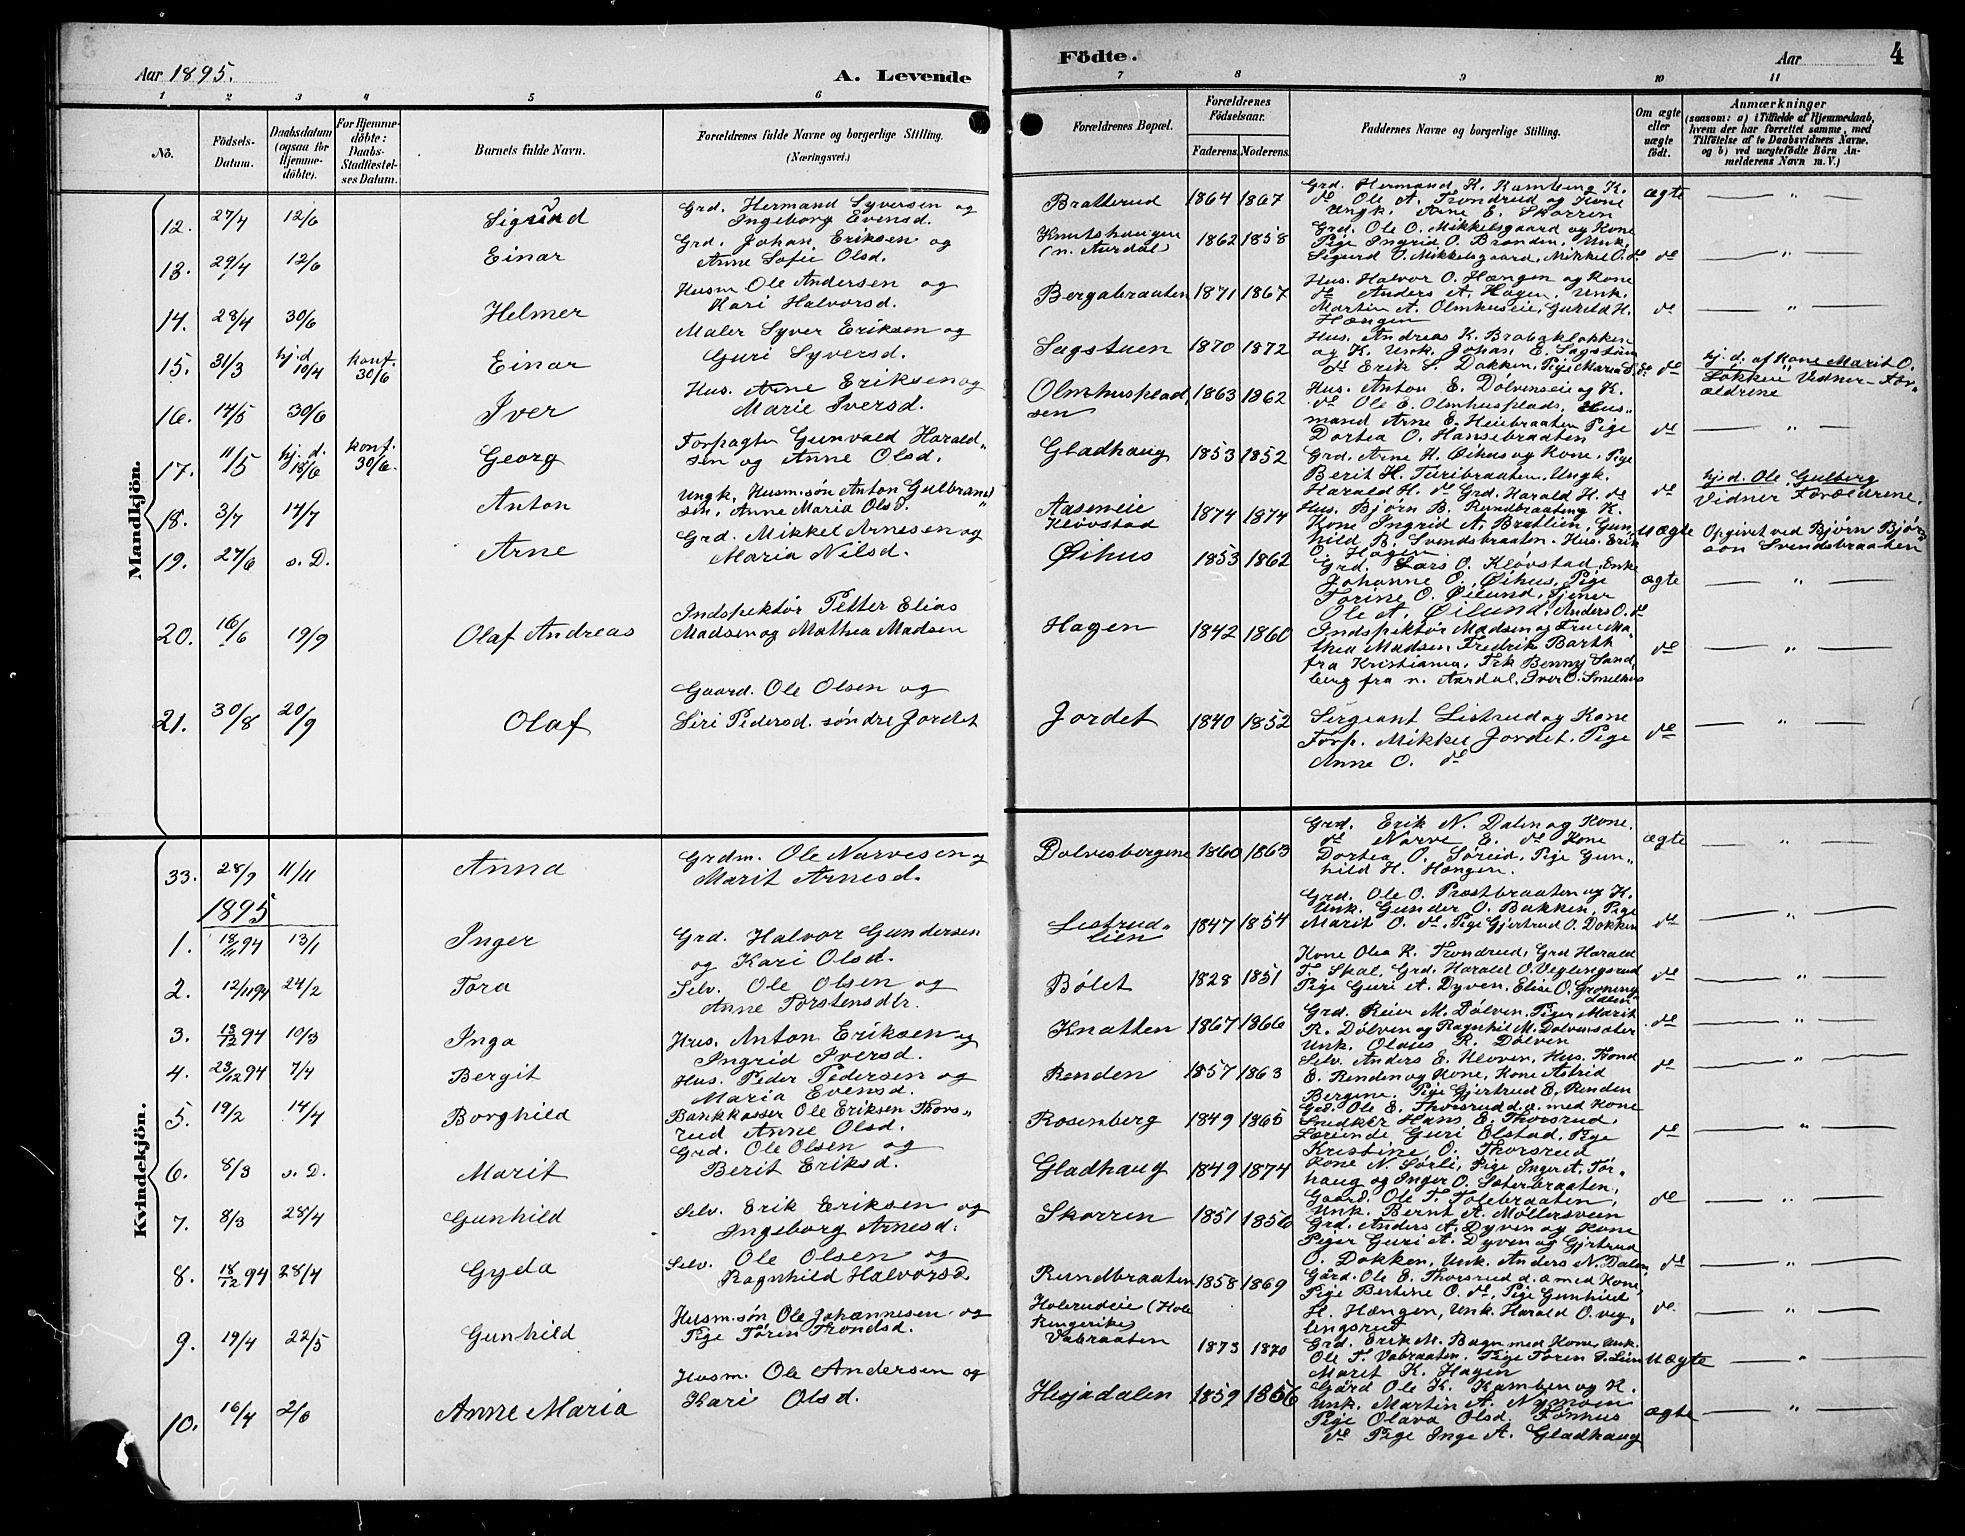 Aar 1895.
A. Levende
Födte.
Aar
4
1 2 3 4 5 6 7 8 9 10 11
Nô.
Födsels-Datum.
Daabsdatum (ogsaa for Hjemme-döbte).
For Hjemme-döbte: Daabs-Stadfæstel-ses Datum.
Barnets fulde Navn.
Forældrenes fulde Navne og borgerlige Stilling.
(Næringsvei.)
Forældrenes Bopæl.
Forældrenes Födselsaar.
Faderens. Moderens.
Faddernes Navne og borgerlige Stilling.
Om ægte eller uægte födt.
Anmærkninger
(saasom: a) i Tilfælde af Hjemmedaab,
hvem der har forrettet samme, med
Tilföielse af to Daabsvidners Navne.
og b) ved uægtefödte Börn An-
melderens Navn m. V.)
Mandkjön.
12. 27/4 12/6 Sigurd Grd. Hermand Syversen og
Ingeborg Evensd. Bratterud 1864 1867 Grd. Hermand K. Kambeng K.
do Ole A. Trondrud og Kone
Ungk. Arne E. Skorren ægte — " —
13. 29/4 12/6 Einar Grd. Johan Eriksen og
Anne Sofie Olsd. Knutshaugen
(n. Aurdal) 1862 1858 Grd. Ole O. Mikkelsgaard og Kone
Pige Ingrid O. Branden, Unk.
Sigurd O. Mikkelsgaard, Mikkel O. do do — " —
14. 28/4 30/6 Helmer Husm. Ole Andersen og
Kari Halvorsd. Bergabraaten 1871 1867 Hus. Halvor O. Hængen og Kone
do Anders A. Hagen, Unk.
Martin A. Olmhuseie, Gunild H.
Hængen do — " —
15. 31/3 hj. d 10/4 konf. 30/6 Einar Maler Syver Eriksen og
Guri Syversd. Sagstuen 1870 1872 Hus. Andreas K.
og K. Unk. Johan E. Sagstuen
do Erik S. Dokken, Pige Maria S. do do hj. d. af Kone Marit O.
Løkkeie Vidner - For-
ældrene
16. 14/5 30/6 Iver Hus. Arne Eriksen og
Marie Iversd. Olmhusplad-
sen 1863 1862 Hus. Anton E. Dølvenseie og K.
do Ole E. Olmhusplads, Hus-
mand Arne E. Heiebraaten Pige
Dortea O. Hansebraaten do — " —
17. 11/5 hj. d. 18/6 konf. 30/6. Georg Forpagter Gunvald Harald-
sen og Anne Olsd. Gladhaug 1853 1852 Grd. Arne H. Øihus og Kone, Pige
Berit H. Turibraaten, Ungk.
Harald H. do Grd. Harald H. do do hj. d. Ole Gulberg
Vidner Forældrene.
18. 3/7 14/7 Anton Ungk. Husm.søn Anton Gulbrand-
sen, Anne Maria Olsd. Aasmeie
Kløvstad 1874 1874 Hus. Bjørn B. Rundbraateng K.
Kone Ingrid A. Bratlien, Gun-
hild B. Svendsbraaten. Hus. Erik
O. Hagen uægte Opgivet ved Bjørn Bjørn-
son Svendsbraaten
19. 27/6 s. D. Arne Grd. Mikkel Arnesen og
Maria Nilsd. Øihus 1853 1862 Grd. Lars O. Kløvstad, Enke
Johanne O. Øihus, Pige
Torine O. Øilund, Tjener
Ole A. Øilund, Anders O. do ægte — " —
20. 16/6 19/9 Olaf Andreas Indspektør Petter Elias
Madsen og Mathea Madsen Hagen 1842 1860 Indspektør Madsen og Frue Ma-
thea Madsen, Fredrik Barth
fra Kristiania, Frk Benny Sand-
berg fra n. Aurdal, Iver O. Smelhus do — " —
21. 30/8 20/9 Olaf Gaard. Ole Olsen og
Siri Pedersd. søndre Jordet Jordet 1840 1852 Sergeant Listrud og Kone
Forp. Mikkel Jordet, Pige
Anne O. do do — " —
Kvindekjön.
33. 28/9 11/11 Anna Grdm. Ole Narvesen og
Marit Arnesd. Dolvesbergene 1860 1863 Grd. Erik N. Dalen og Kone.
do Narve E. do Kone
Dortea O. Søreid, Pige Gun-
hild H. Hængen. ægte — " —
1895
1. 18/11 94 13/1 Inger Grd. Halvor Gundersen
og Kari Olsd. Listrud-
lien 1847 1854 Grd. Ole O. Præstbraaten og K.
Unk. Gunder O. Bakken, Pige
Marit O. do, Pige Gjertrud O. Dokken do — " —
2. 12/11 94 24/2 Tora Selv. Ole Olsen og
Anne Torstensdtr. Bølet 1828 1851 Kone Olea K. Trondrud, Grd Harald
T. Skal, Grd. Harald O. Veglingsrud
Pige Guri A. Dyven, Elise O. Grøning-
dalen do — " —
3. 13/12 94 10/3 Inga Hus. Anton Eriksen og
Ingrid Iversd. Knatten 1867 1866 Grd. Reier M. Dølven, Piger Marit
R. Dølven og Ragnhil M. Dølvensæter
Unk. Olaus R. Dølven do — " —
4. 23/12 94 7/4 Bergit Hus. Peder Pedersen og
Maria Evensd. Renden 1857 1863 Selv. Anders E. Kloven, Hus. Trond
E. Renden og Kone, Kone Astrid
Bergene, Pige Gjertrud E. Renden do — " —
5. 19/2 14/4 Borghild Bankkasser Ole Eriksen Thors-
rud Anne Olsd. Rosenberg 1849 1865 Grd. Ole E. Thorsrud d. æ. med Kone
Snedker Hans E. Thorsrud,
Lærerinde Guri Olstad, Pige
Kristine O. Thorsrud do — " —
6. 8/3 s. D. Marit Grd. Ole Olsen og
Berit Eriksd. Gladhaug 1849 1874 Kone N. Sørli, Pige Inger A. Tør-
haug og Inger O. Sæterbraaten,
Gaard. Ole T. Tolebraaten,
Unk. Bernt A. Møllersveen do — " —
7. 8/3 28/4 Gunhild Selv. Erik Eriksen og
Ingeborg Arnesd. Skorren 1851 1856 Grd. Anders A. Dyven og Kone
Piger Guri A. Dyven og Gjertrud
O. Dokken, Unk. Anders N. Dalen do — " —
8. 18/12 94 28/4 Gyda Selv. Ole Olsen og
Ragnhild Halvorsd. Rundbraaten 1858 1869 Gård. Ole E. Thorsrud d. æ med Kone
Pige Bertine O. do, Pige Gunhild
H. Hængen, Unk. Harald O. veg-
lingsrud do — " —
9. 19/4 22/5 Gunhild Husm.søn Ole Johannesen og
Pige Tøren Trondsd. Holerudeie (Hole
Ringerike)
Vabraaten 1873 1870 Grd. Erik M. Bagn med Kone, Unk.
Ole T. Vabraaten. Pige Tøren T. Lien
Marit K. Hagen uægte — " —
10. 16/4 2/6 Anne Maria Husm. Ole Andersen og
Kari Olsd. Heiadalen 1859 1856 Gård Ole K. Kamben og K.
Unk. Martin A. Nymoen
Pige Olava Olsd. Tønhus
do Pige Inge A. Gladhaug ægte — " —